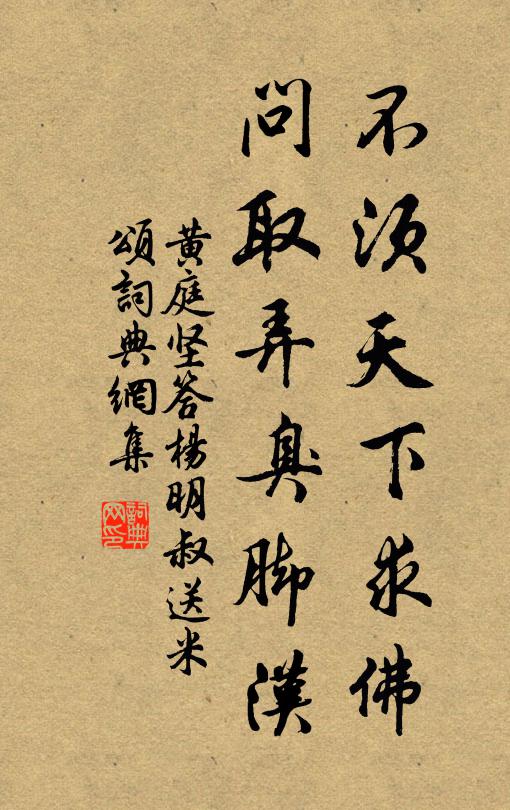 不须天下求佛
问取弄臭脚汉
黄庭坚答杨明叔送米
颂词典网集
詞典网印